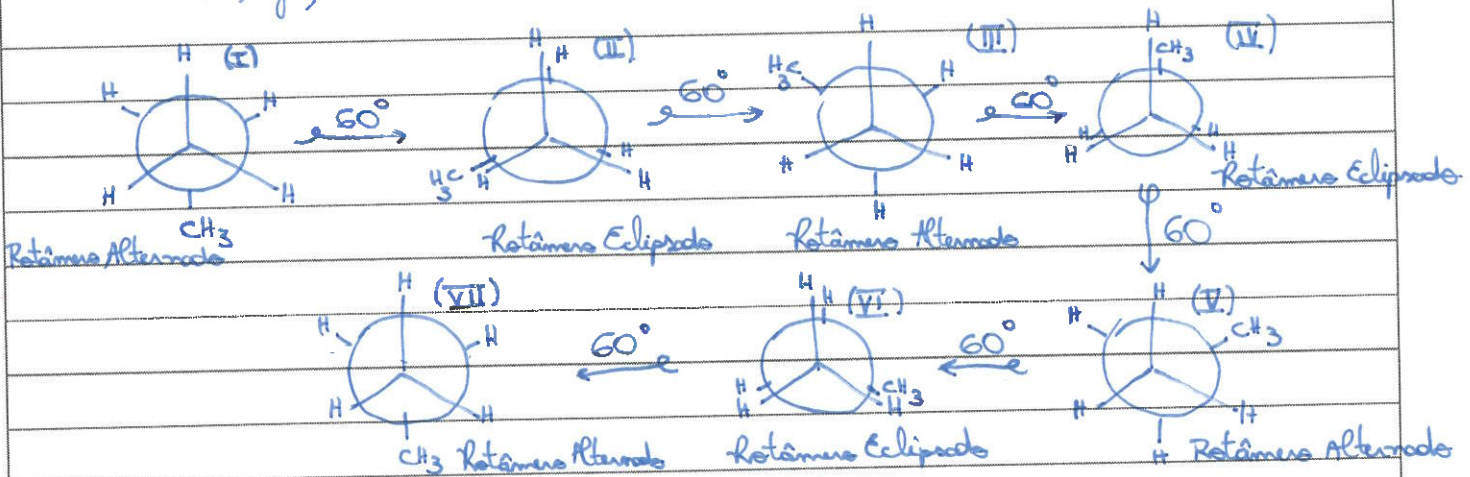 H (I)
H H
60°
H H
CH3
Rotâmero Alternado
H
H (II)
H3C H H
H
Rotâmero Eclipsado
60°
H (III)
H3C H
H H
H
Rotâmero Alternado
60°
H (IV)
CH3
H H
H H
Rotâmero Eclipsado
60°
H (V)
H CH3
H H
H
Rotâmero Alternado
60°
H (VI)
H
H CH3
H H
Rotâmero Eclipsado
60°
H (VII)
H H
H H
CH3
Rotâmero Alternado